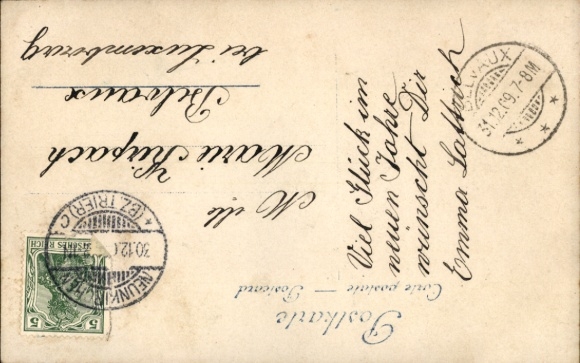 Postkarte
Carte postale — Postcard
Mlle
Marie Kirpach
Belvaux
bei Luxemburg
Viel Glück im
neuen Jahre
wünscht Dir
Emma Lattrich
BELVAUX
31.12.09.7-8M
(BZ.TRIER) C
30.12.
NEUNKIRCHEN
5 5